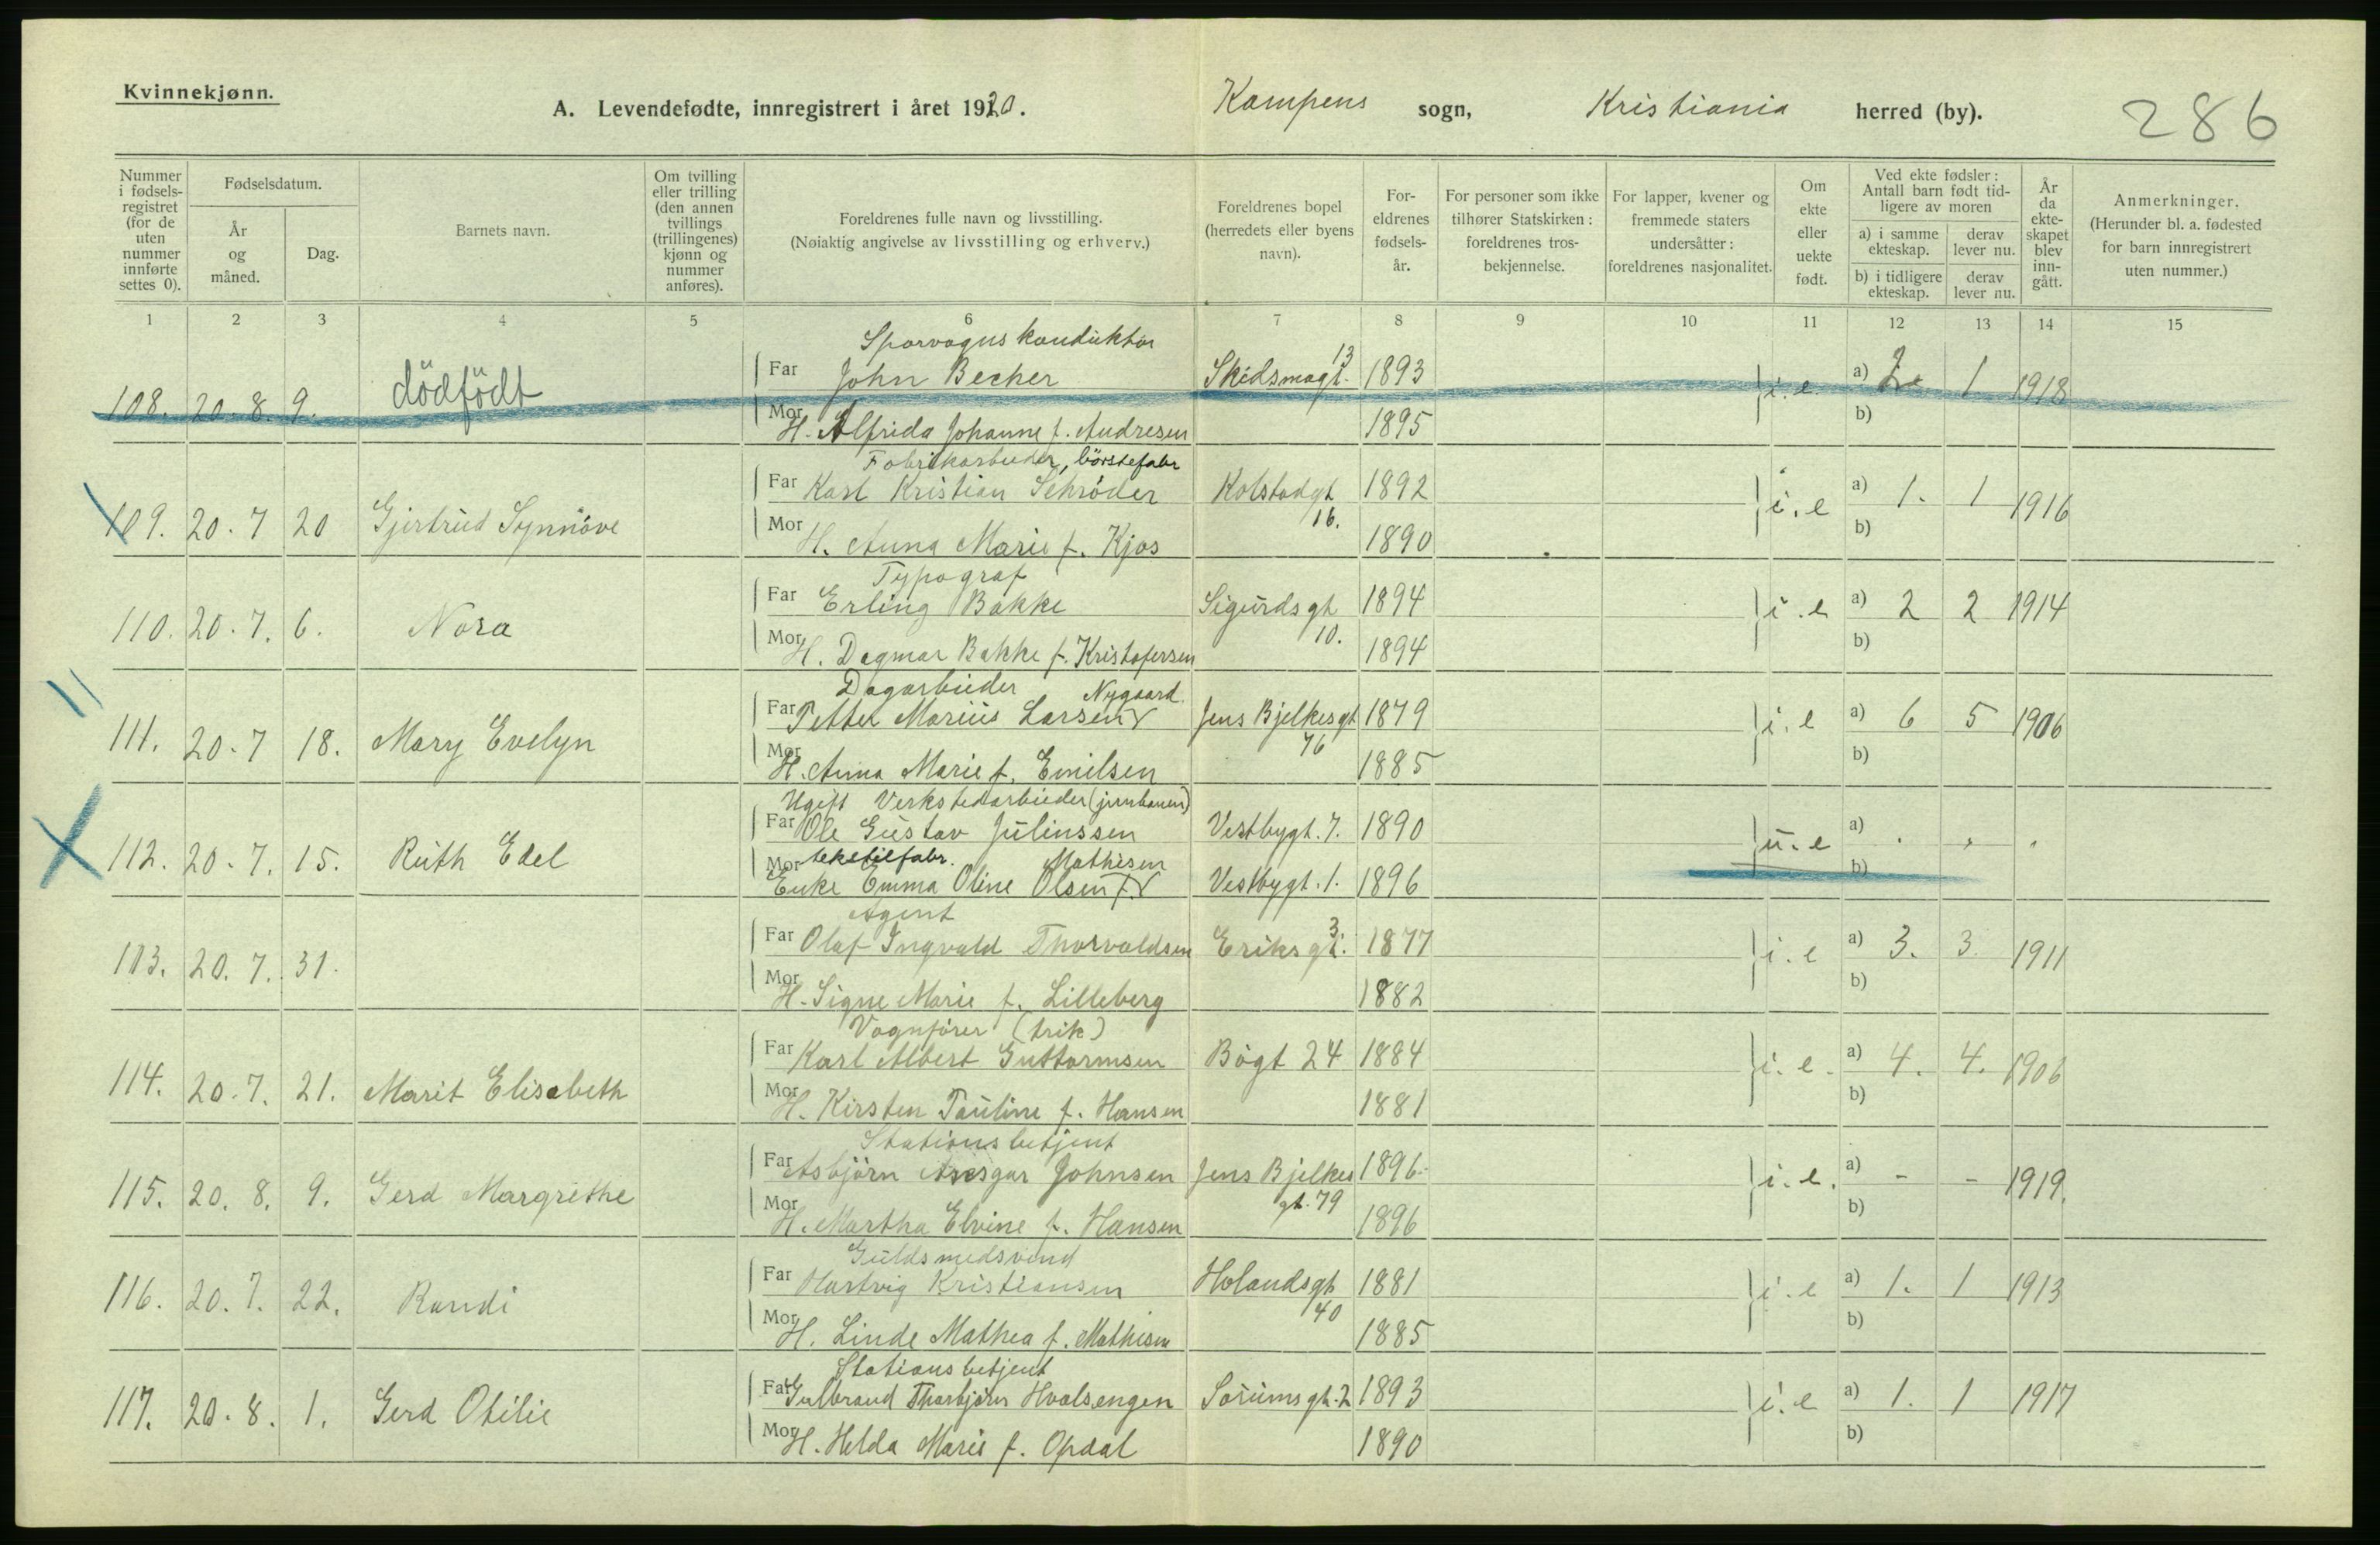 Kvinnekjønn.
A. Levendefødte, innregistrert i året 1920. Kampens sogn, Kristiania herred (by). 286
Nummer i fødselsregistret (for de uten nummer innførte settes 0).
Fødselsdatum.
År og måned.
Dag.
Barnets navn.
Om tvilling eller trilling (den annen tvillings (trillingenes) kjønn og nummer anføres).
Foreldrenes fulle navn og livsstilling.
(Nøiaktig angivelse av livsstilling og erhverv.)
Foreldrenes bopel (herredets eller byens navn).
Foreldrenes fødselsår.
For personer som ikke tilhører Statskirken: foreldrenes trosbekjennelse.
For lapper, kvener og fremmede staters undersåtter: foreldrenes nasjonalitet.
Om ekte eller uekte født.
Ved ekte fødsler: Antall barn født tidligere av moren
a) i samme ekteskap. derav lever nu.
b) i tidligere ekteskap. derav lever nu.
År da ekteskapet blev inngått.
Anmerkninger.
(Herunder bl. a. fødested for barn innregistrert uten nummer.)
1 2 3 4 5 6 7 8 9 10 11 12 13 14 15
Sporvognskonduktör
108. 20. 8. 9. dödfödt Far John Becker Skedsmogt. 13 1893 i. e. a) 2 1 1918
Mor H. Alfrida Johanne f. Andresen 1895 b)
Fabrikarbeider, börstefabr
109. 20. 7 20 Gjertrud Synnöve Far Karl Kristian Schröder Kolstadgt 16. 1892 i. e a) 1. 1 1916
Mor H. Anna Marie f. Kjos 1890 b)
Typograf
110. 20. 7. 6. Nora Far Erling Bakke Sigurdsgt 10. 1894 i. e a) 2 2 1914
Mor H. Dagmar Bakke f. Kristofersen 1894 b)
Dagarbeider Nygaard
111. 20. 7 18. Mary Evelyn Far Petter Marius Larsen Jens Bjelkesgt 76 1879 i. e a) 6 5 1906
Mor H. Anna Marie f. Emilsen 1885 b)
Ugift Verkstedarbeider (jernbanen)
112. 20. 7. 15. Ruth Edel Far Ole Gustav Juliussen Vestbygt. 7. 1890 u. e a)
tekstilfabr. Mathisen
Mor Enke Emma Oline Olsen f. Vestbygt. 1. 1896 b)
Agent
113. 20. 7. 31. Far Olaf Ingvald Thorvaldsen Eriksgt. 3 1877 i. e a) 3. 3. 1911
Mor H. Signe Marie f. Lilleberg 1882 b)
Vognförer (trik)
114. 20. 7. 21. Marit Elisabeth Far Karl Albert Guttormsen Bögt 24 1884 i. e. a) 4. 4. 1906
Mor H. Kirsten Pauline f. Hansen 1881 b)
Stationsbetjent
115. 20. 8. 9. Gerd Margrethe Far Asbjörn Ansgar Johnsen Jens Bjelkes gt. 79 1896 i. e. a) - - 1919.
Mor H. Martha Elvine f. Hansen 1896 b)
Guldsmedsvend
116. 20. 7. 22. Randi Far Hartvig Kristiansen Hølandsgt 40 1881 i. e a) 1. 1 1913
Mor H. Linde Mathea f. Mathisen 1885 b)
Stationsbetjent
117. 20. 8. 1. Gerd Otilie Far Gulbrand Thorbjörn Hvalsengen Sörumsgt. 2 1893 i. e a) 1. 1 1917
Mor H. Helda Marie f. Opdal 1890 b)